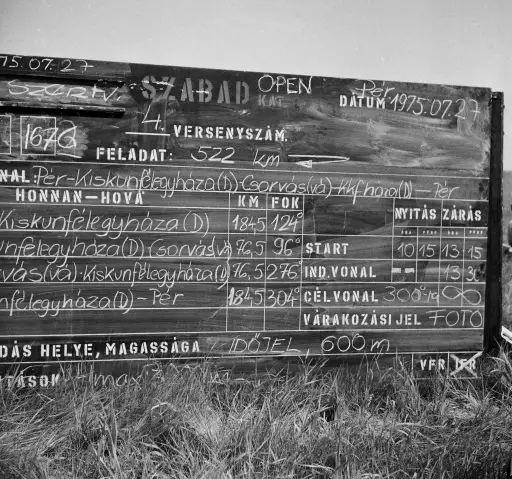 75.07.27
SZABAD OPEN Pér
KAT. DÁTUM 1975.07.27
1676 4. VERSENYSZÁM.
FELADAT: 522 km
NAL: Pér-Kiskunfélegyháza(D)-Csorvás(vá)-Kkfháza(D)-Pér
HONNAN-HOVÁ KM FOK NYITÁS ZÁRÁS
Kiskunfélegyháza(D) 184,5 124°
unfélegyháza(D)-Csorvás(vá) 76,5 96° START 10 15 13 15
rvás(vá)-Kiskunfélegyháza(D) 76,5 276° IND.VONAL -- 13 30
nfélegyháza(D)-Pér 184,5 304° CÉLVONAL 300°-ig ∞
VÁRAKOZÁSI JEL FOTO
DÁS HELYE, MAGASSÁGA IDŐJEL, 600 m
VFR IFR
max